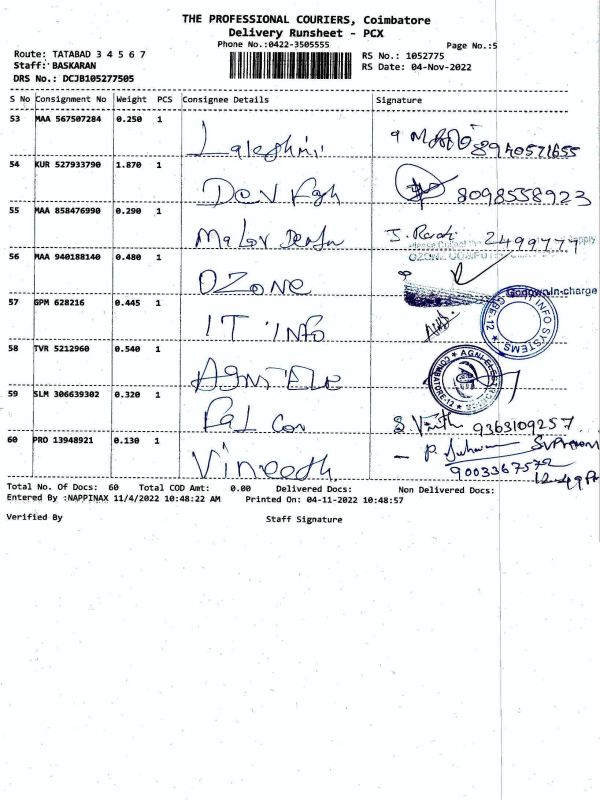 THE PROFESSIONAL COURIERS, Coimbatore
Delivery Runsheet - PCX
Phone No.:0422-3505555 Page No.:5
Route: TATABAD 3 4 5 6 7 RS No.: 1052775
Staff: BASKARAN RS Date: 04-Nov-2022
DRS No.: DCJB105277505
S No Consignment No Weight PCS Consignee Details Signature
53 MAA 567507284 0.250 1
8940571655
54 KUR 527933790 1.870 1
8098558923
55 MAA 858476990 0.290 1
2499777
56 MAA 940188140 0.480 1 OZONE
Godown-In-charge
57 GPM 628216 0.445 1 IT INFO
INFO SYSTEMS
58 TVR 5212960 0.540 1 AGNI ELE
COIMBATORE-12
59 SLM 306639302 0.320 1
9363109257
60 PRO 13948921 0.130 1 Vineeth
Total No. Of Docs: 60 Total COD Amt: 0.00 Delivered Docs: Non Delivered Docs:
Entered By :NAPPINAX 11/4/2022 10:48:22 AM Printed On: 04-11-2022 10:48:57
Verified By Staff Signature